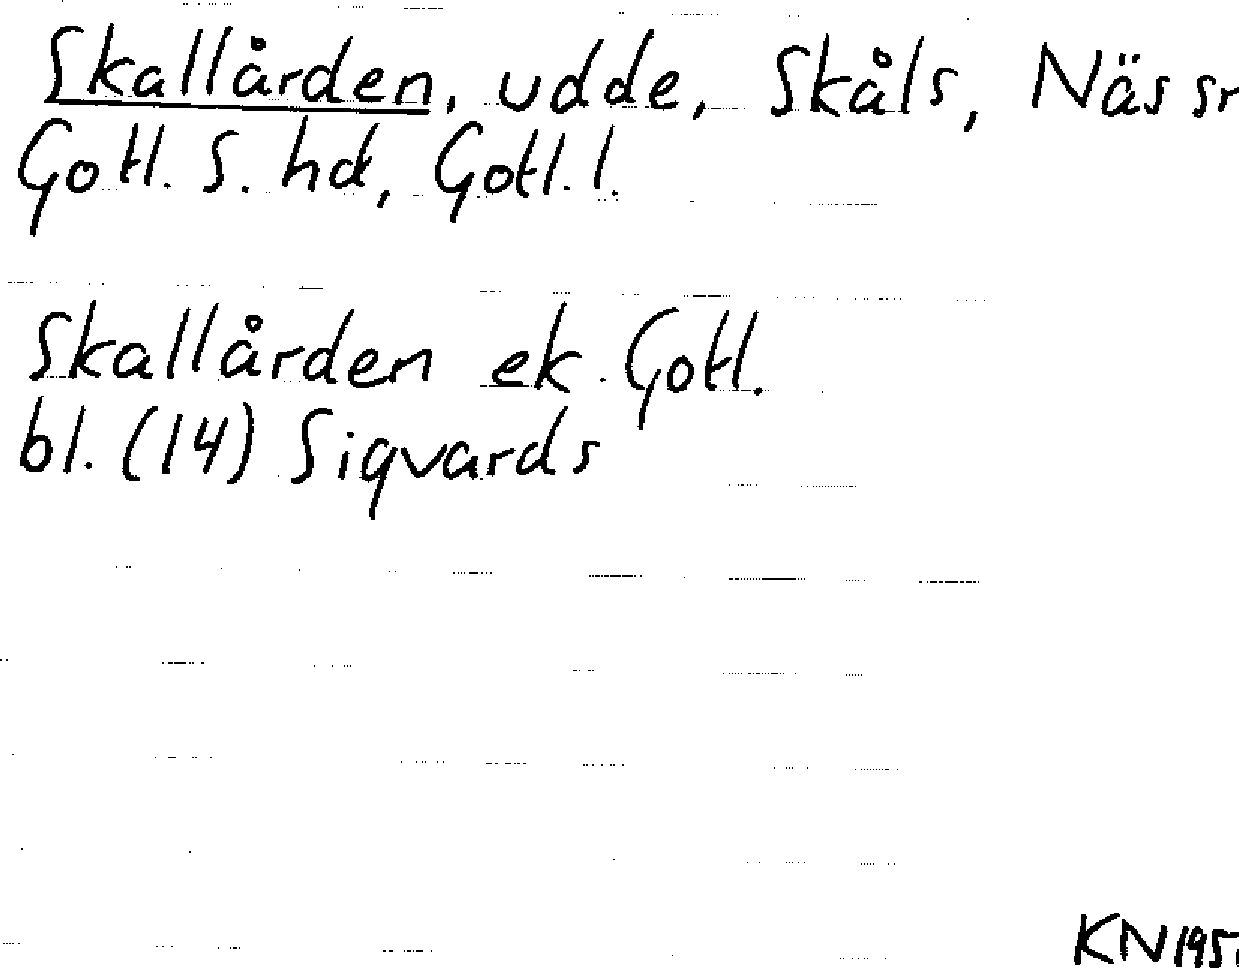 Skallården, udde, Skåls, Näs sn
Gotl. S. hd, Gotl. l.
Skallården ek. Gotl.
bl. (14) Sigvards
KN